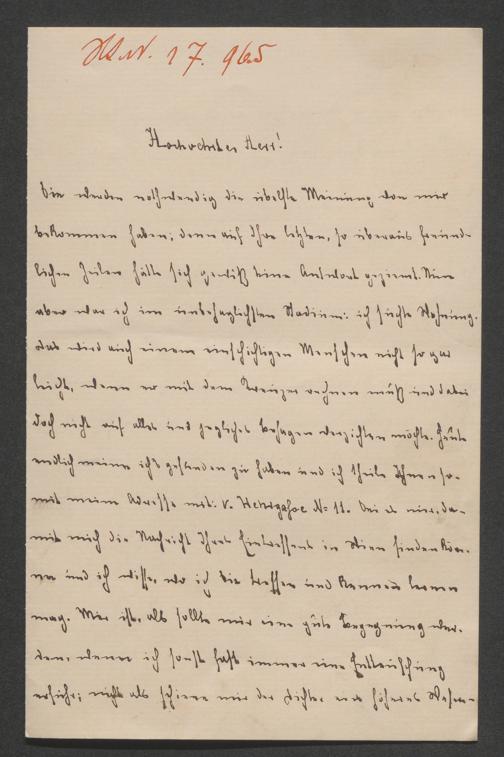 H.I.N. 17.965
Hochverehrter Herr!
Sie werden nothwendig die übelste Meinung von mir
bekommen haben; denn auf Ihre letzten, so überaus freund-
lichen Zeilen hätte sich gewiß eine Antwort geziemt. Nun
aber war ich im unbehaglichsten Stadium: ich suchte Wohnung.
das wird auch einem einschichtigen Menschen nicht so gar
leicht, wenn er mit dem Kreuzer rechnen muß und dabei
doch nicht auf alles und jegliches Behagen verzichten möchte. Heute
endlich meine ich's gefunden zu haben und ich theile Ihnen so-
mit meine Adresse mit: V. Hehrgasse No 11. Sei es nur, da-
mit mich die Nachricht Ihres Eintreffens in Wien finden kön-
ne und ich wisse, wo ich Sie treffen und kennen lernen
mag. Mir ist, als sollte mir eine gute Begegnung wer-
den, wenn ich sonst fast immer eine Enttäuschung
erfuhr; nicht als schiene mir der Dichter ein höheres Wesen